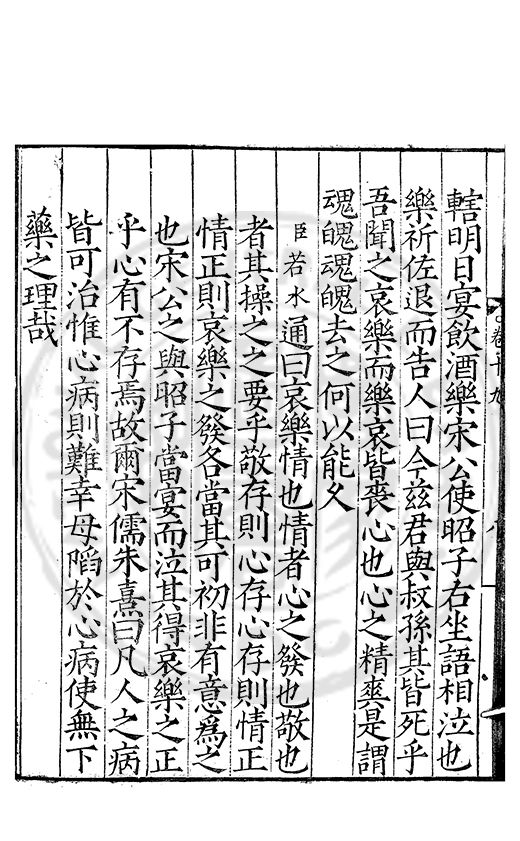 卷十九
八
轄明日宴飲酒樂宋公使昭子右坐語相泣也
樂祈佐退而告人曰今茲君與叔孫其皆死乎
吾聞之哀樂而樂哀皆喪心也心之精爽是謂
魂魄魂魄去之何以能久
臣若水通曰哀樂情也情者心之發也敬也
者其操之之要乎敬存則心存心存則情正
情正則哀樂之發各當其可初非有意為之
也宋公之與昭子當宴而泣其得哀樂之正
乎心有不存焉故爾宋儒朱熹曰凡人之病
皆可治惟心病則難幸毋陷於心病使無下
藥之理哉